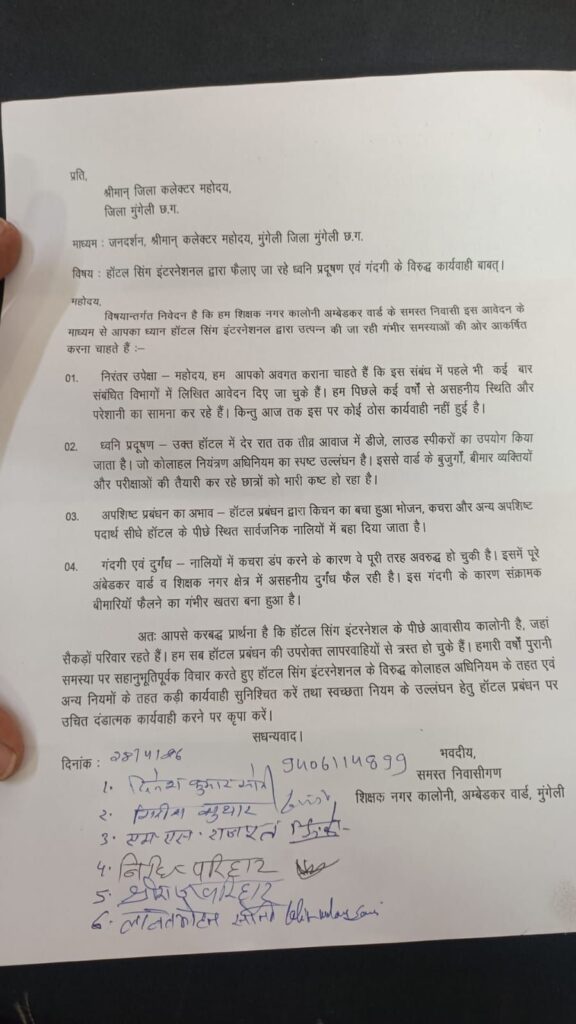 प्रति,
श्रीमान् जिला कलेक्टर महोदय,
जिला मुंगेली छ.ग.
माध्यम : जनदर्शन, श्रीमान् कलेक्टर महोदय, मुंगेली जिला मुंगेली छ.ग.
विषय : हॉटल सिंग इंटरनेशनल द्वारा फैलाए जा रहे ध्वनि प्रदूषण एवं गंदगी के विरुद्ध कार्यवाही बाबत्।
महोदय,
विषयान्तर्गत निवेदन है कि हम शिक्षक नगर कालोनी अम्बेडकर वार्ड के समस्त निवासी इस आवेदन के
माध्यम से आपका ध्यान हॉटल सिंग इंटरनेशनल द्वारा उत्पन्न की जा रही गंभीर समस्याओं की ओर आकर्षित
करना चाहते हैं :–
01. निरंतर उपेक्षा – महोदय, हम आपको अवगत कराना चाहते हैं कि इस संबंध में पहले भी कई बार
संबंधित विभागों में लिखित आवेदन दिए जा चुके हैं। हम पिछले कई वर्षों से असहनीय स्थिति और
परेशानी का सामना कर रहे हैं। किन्तु आज तक इस पर कोई ठोस कार्यवाही नहीं हुई है।
02. ध्वनि प्रदूषण – उक्त हॉटल में देर रात तक तीव्र आवाज में डीजे, लाउड स्पीकरों का उपयोग किया
जाता है। जो कोलाहल नियंत्रण अधिनियम का स्पष्ट उल्लंघन है। इससे वार्ड के बुजुर्गो, बीमार व्यक्तियों
और परीक्षाओं की तैयारी कर रहे छात्रों को भारी कष्ट हो रहा है।
03. अपशिष्ट प्रबंधन का अभाव – हॉटल प्रबंधन द्वारा किचन का बचा हुआ भोजन, कचरा और अन्य अपशिष्ट
पदार्थ सीधे हॉटल के पीछे स्थित सार्वजनिक नालियों में बहा दिया जाता है।
04. गंदगी एवं दुर्गंध – नालियों में कचरा डंप करने के कारण वे पूरी तरह अवरुद्ध हो चुकी है। इसमें पूरे
अंबेडकर वार्ड व शिक्षक नगर क्षेत्र में असहनीय दुर्गंध फैल रही है। इस गंदगी के कारण संक्रामक
बीमारियॉ फैलने का गंभीर खतरा बना हुआ है।
अतः आपसे करबद्ध प्रार्थना है कि हॉटल सिंग इंटरनेशल के पीछे आवासीय कालोनी है, जहां
सैकड़ों परिवार रहते हैं। हम सब हॉटल प्रबंधन की उपरोक्त लापरवाहियों से त्रस्त हो चुके हैं। हमारी वर्षों पुरानी
समस्या पर सहानुभूतिपूर्वक विचार करते हुए हॉटल सिंग इंटरनेशनल के विरुद्ध कोलाहल अधिनियम के तहत एवं
अन्य नियमों के तहत कड़ी कार्यवाही सुनिश्चित करें तथा स्वच्छता नियम के उल्लंघन हेतु हॉटल प्रबंधन पर
उचित दंडात्मक कार्यवाही करने पर कृपा करें।
सधन्यवाद।
दिनांक : 28/4/26
भवदीय,
9406114899
समस्त निवासीगण
शिक्षक नगर कालोनी, अम्बेडकर वार्ड, मुंगेली
1. दिनेश कुमार
2. गिरीश सुथार
3. एम. एल. राजपूत
4. निधि परिहार
5. परिहार
6. ललितमोहन सोनी